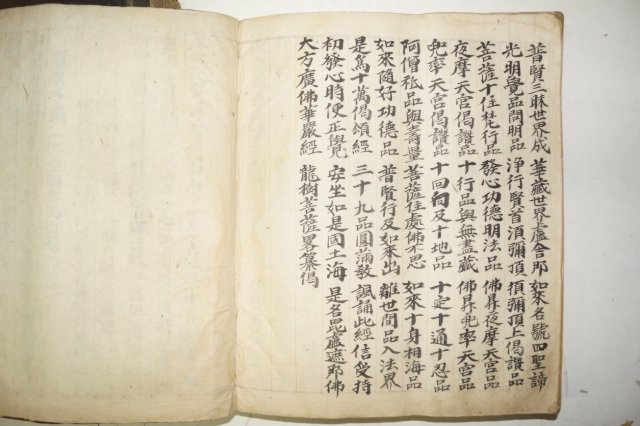 普賢三昧世界成 華藏世界盧舍那 如來名號四聖諦
光明覺品問明品 淨行賢首須彌頂 須彌頂上偈讚品
菩薩十住梵行品 發心功德明法品 佛昇夜摩天宮品
夜摩天宮偈讚品 十行品與無盡藏 佛昇兜率天宮品
兜率天宮偈讚品 十回向及十地品 十定十通十忍品
阿僧祗品與壽量 菩薩住處佛不思 如來十身相海品
如來隨好功德品 普賢行及如來出 離世間品入法界
是爲十萬偈頌經 三十九品圓滿教 諷誦此經信受持
初發心時便正覺 安坐如是國土海 是名毘盧遮那佛
大方廣佛華嚴經 龍樹菩薩畧纂偈